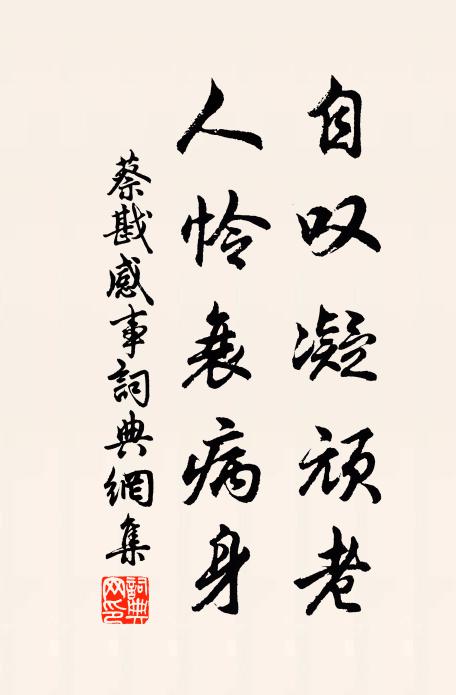 自叹凝顽老
人怜衰病身
蔡戡感事詞典網集
詞典网印